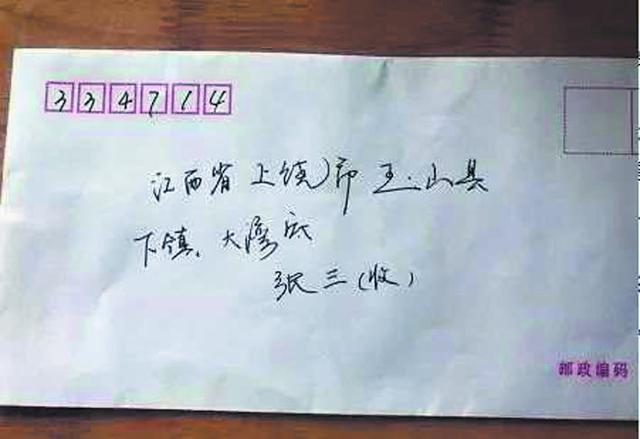 334714
江西省上饶市玉山县
下镇,大
张三(收)
邮政编码